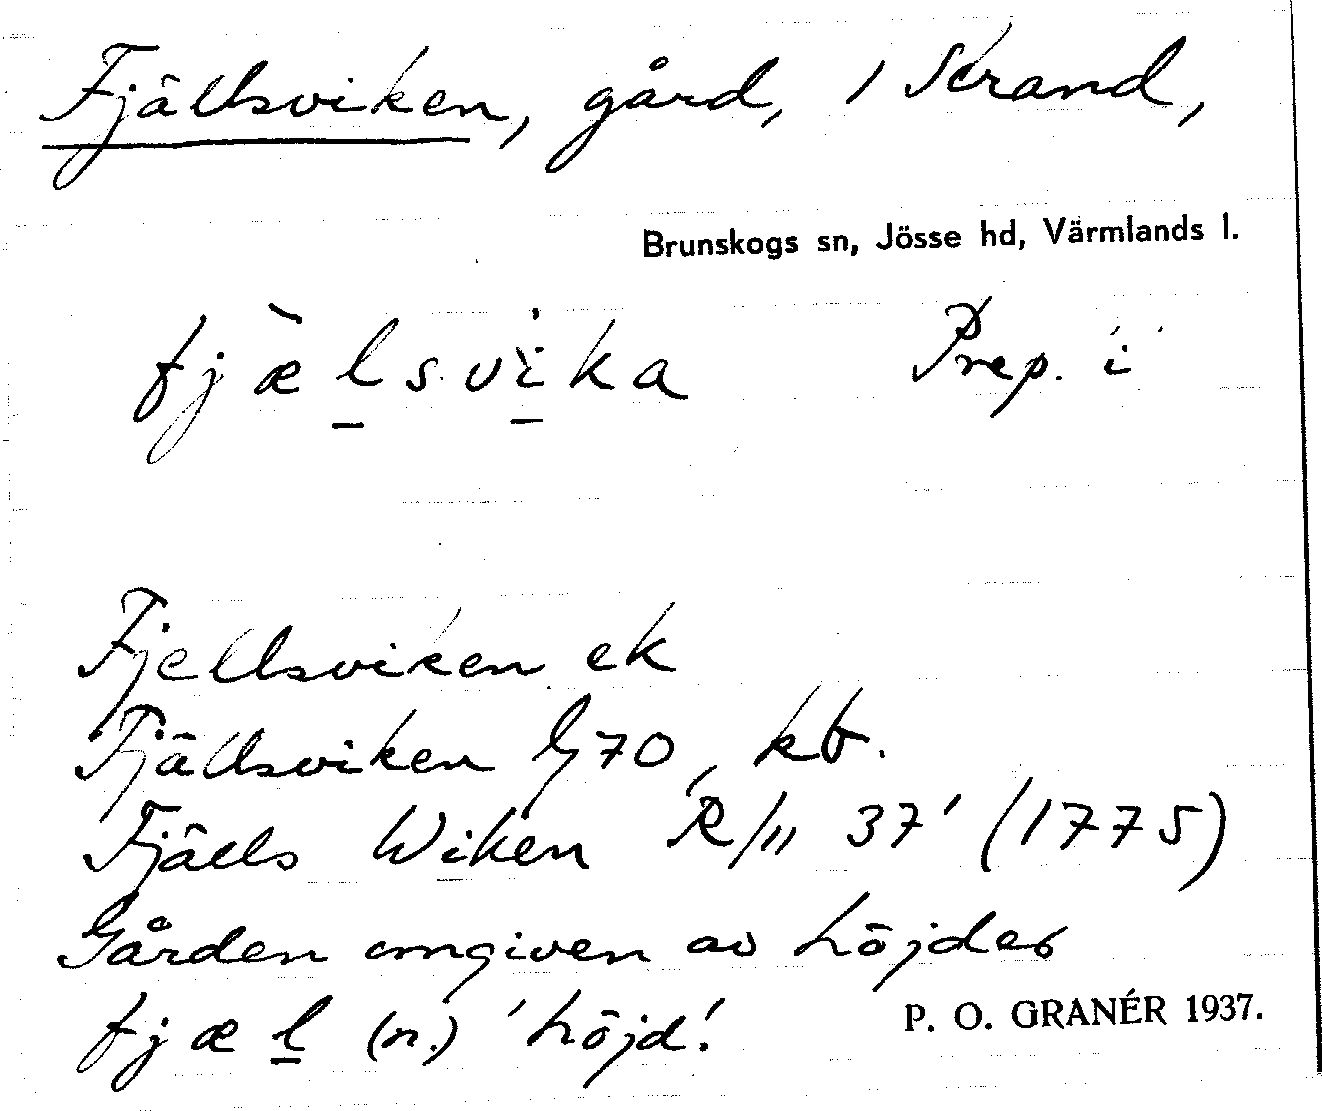 Fjällsviken, gård, i Strand,
Brunskogs sn, Jösse hd, Värmlands l.
fjæ̀l̲svì̲ka Prep. 'i'
Fjellsviken ek
Fjällsviken Gj 70, kb.
Fjälls Wiken R/11 37' (1775)
Gården omgiven av höjder
fjæl̲ (n.) 'höjd'.
P. O. GRANÉR 1937.